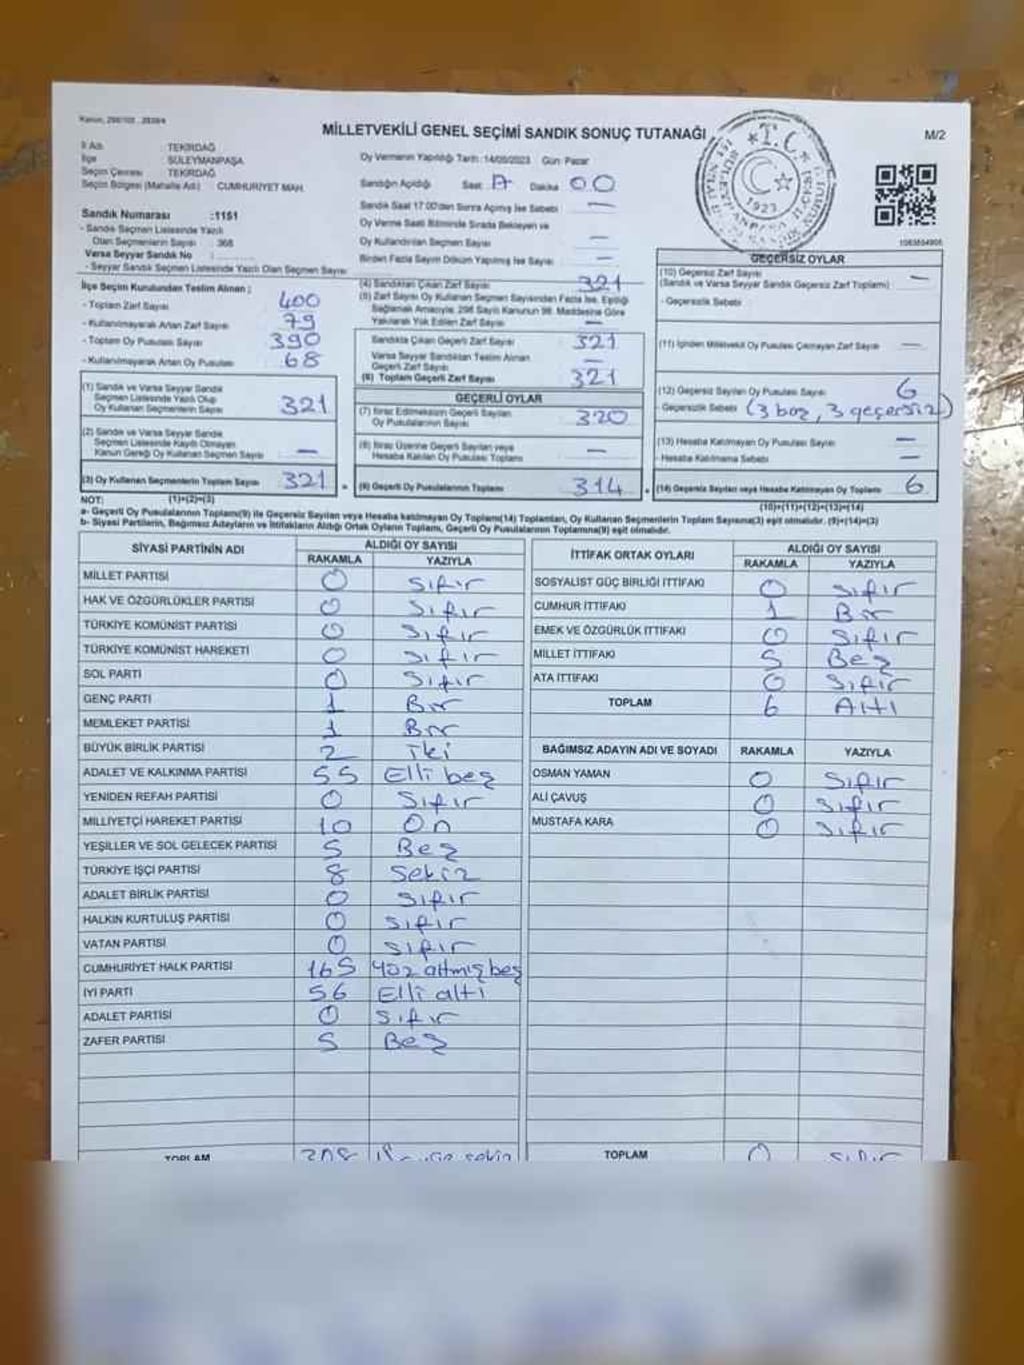 MİLLETVEKİLİ GENEL SEÇİMİ SANDIK SONUÇ TUTANAĞI
M/2
İl Adı : TEKİRDAĞ
İlçe : SÜLEYMANPAŞA
Seçim Çevresi : TEKİRDAĞ
Seçim Bölgesi (Mahalle Adı) CUMHURİYET MAH.
Sandık Numarası :1151
- Sandık Seçmen Listesinde Yazılı
Olan Seçmenlerin Sayısı : 368
Varsa Seyyar Sandık No :
- Seyyar Sandık Seçmen Listesinde Yazılı Olan Seçmen Sayısı
Oy Vermenin Yapıldığı Tarih :14/05/2023 Gün: Pazar
Sandığın Açıldığı Saat 17 Dakika 00
Sandık Saat 17.00'den Sonra Açılmış İse Sebebi : —
Oy Verme Saati Bitiminde Sırada Bekleyen ve
Oy Kullandırılan Seçmen Sayısı —
Birden Fazla Sayım Döküm Yapılmış İse Sayısı : —
T.C.
1923
İlçe Seçim Kurulundan Teslim Alınan ;
- Toplam Zarf Sayısı 400
- Kullanılmayarak Artan Zarf Sayısı 79
- Toplam Oy Pusulası Sayısı 390
- Kullanılmayarak Artan Oy Pusulası 68
(1) Sandık ve Varsa Seyyar Sandık
Seçmen Listesinde Yazılı Olup
Oy Kullanan Seçmenlerin Sayısı 321
(2) Sandık ve Varsa Seyyar Sandık
Seçmen Listesinde Kayıtlı Olmayan
Kanun Gereği Oy Kullanan Seçmen Sayısı —
(3) Oy Kullanan Seçmenlerin Toplam Sayısı 321
(1)+(2)=(3)
(4) Sandıktan Çıkan Zarf Sayısı 321
(5) Zarf Sayısı Oy Kullanan Seçmen Sayısından Fazla İse, Eşitliği
Sağlamak Amacıyla; 298 Sayılı Kanunun 98. Maddesine Göre
Yakılarak Yok Edilen Zarf Sayısı —
Sandıkta Çıkan Geçerli Zarf Sayısı 321
Varsa Seyyar Sandıktan Teslim Alınan
Geçerli Zarf Sayısı —
(6) Toplam Geçerli Zarf Sayısı 321
GEÇERLİ OYLAR
(7) İtiraz Edilmeksizin Geçerli Sayılan
Oy Pusulalarının Sayısı 320
(8) İtiraz Üzerine Geçerli Sayılan veya
Hesaba Katılan Oy Pusulası Toplamı —
(9) Geçerli Oy Pusulalarının Toplamı 314
GEÇERSİZ OYLAR
(10) Geçersiz Zarf Sayısı
(Sandık ve Varsa Seyyar Sandık Geçersiz Zarf Toplamı) —
- Geçersizlik Sebebi
(11) İçinden Milletvekili Oy Pusulası Çıkmayan Zarf Sayısı —
(12) Geçersiz Sayılan Oy Pusulası Sayısı 6
- Geçersizlik Sebebi (3 boş, 3 geçersiz)
(13) Hesaba Katılmayan Oy Pusulası Sayısı —
- Hesaba Katılmama Sebebi —
(14) Geçersiz Sayılan veya Hesaba Katılmayan Oy Toplamı 6
(10)+(11)+(12)+(13)=(14)
NOT:
a- Geçerli Oy Pusulalarının Toplamı(9) ile Geçersiz Sayılan veya Hesaba katılmayan Oy Toplamı(14) Toplamları, Oy Kullanan Seçmenlerin Toplam Sayısına(3) eşit olmalıdır. (9)+(14)=(3)
b- Siyasi Partilerin, Bağımsız Adayların ve İttifakların Aldığı Ortak Oyların Toplamı, Geçerli Oy Pusulalarının Toplamına(9) eşit olmalıdır.
SİYASİ PARTİNİN ADI ALDIĞI OY SAYISI
RAKAMLA YAZIYLA
MİLLET PARTİSİ 0 Sıfır
HAK VE ÖZGÜRLÜKLER PARTİSİ 0 Sıfır
TÜRKİYE KOMÜNİST PARTİSİ 0 Sıfır
TÜRKİYE KOMÜNİST HAREKETİ 0 Sıfır
SOL PARTİ 0 Sıfır
GENÇ PARTİ 1 Bir
MEMLEKET PARTİSİ 1 Bir
BÜYÜK BİRLİK PARTİSİ 2 iki
ADALET VE KALKINMA PARTİSİ 55 Elli beş
YENİDEN REFAH PARTİSİ 0 Sıfır
MİLLİYETÇİ HAREKET PARTİSİ 10 On
YEŞİLLER VE SOL GELECEK PARTİSİ 5 Beş
TÜRKİYE İŞÇİ PARTİSİ 8 Sekiz
ADALET BİRLİK PARTİSİ 0 Sıfır
HALKIN KURTULUŞ PARTİSİ 0 Sıfır
VATAN PARTİSİ 0 Sıfır
CUMHURİYET HALK PARTİSİ 165 yüz altmış beş
İYİ PARTİ 56 Elli altı
ADALET PARTİSİ 0 Sıfır
ZAFER PARTİSİ 5 Beş
TOPLAM 308 Üç yüz sekiz
İTTİFAK ORTAK OYLARI ALDIĞI OY SAYISI
RAKAMLA YAZIYLA
SOSYALİST GÜÇ BİRLİĞİ İTTİFAKI 0 Sıfır
CUMHUR İTTİFAKI 1 Bir
EMEK VE ÖZGÜRLÜK İTTİFAKI 0 Sıfır
MİLLET İTTİFAKI 5 Beş
ATA İTTİFAKI 0 Sıfır
TOPLAM 6 Altı
BAĞIMSIZ ADAYIN ADI VE SOYADI RAKAMLA YAZIYLA
OSMAN YAMAN 0 Sıfır
ALİ ÇAVUŞ 0 Sıfır
MUSTAFA KARA 0 Sıfır
TOPLAM 0 Sıfır